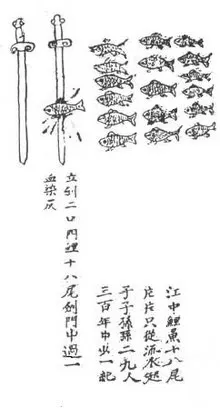 江中鯉魚十八尾
片片只從流水起
子子孫孫二九人
三百年中少一紀
立劍二口門裡十八尾劍門中過一
血染灰